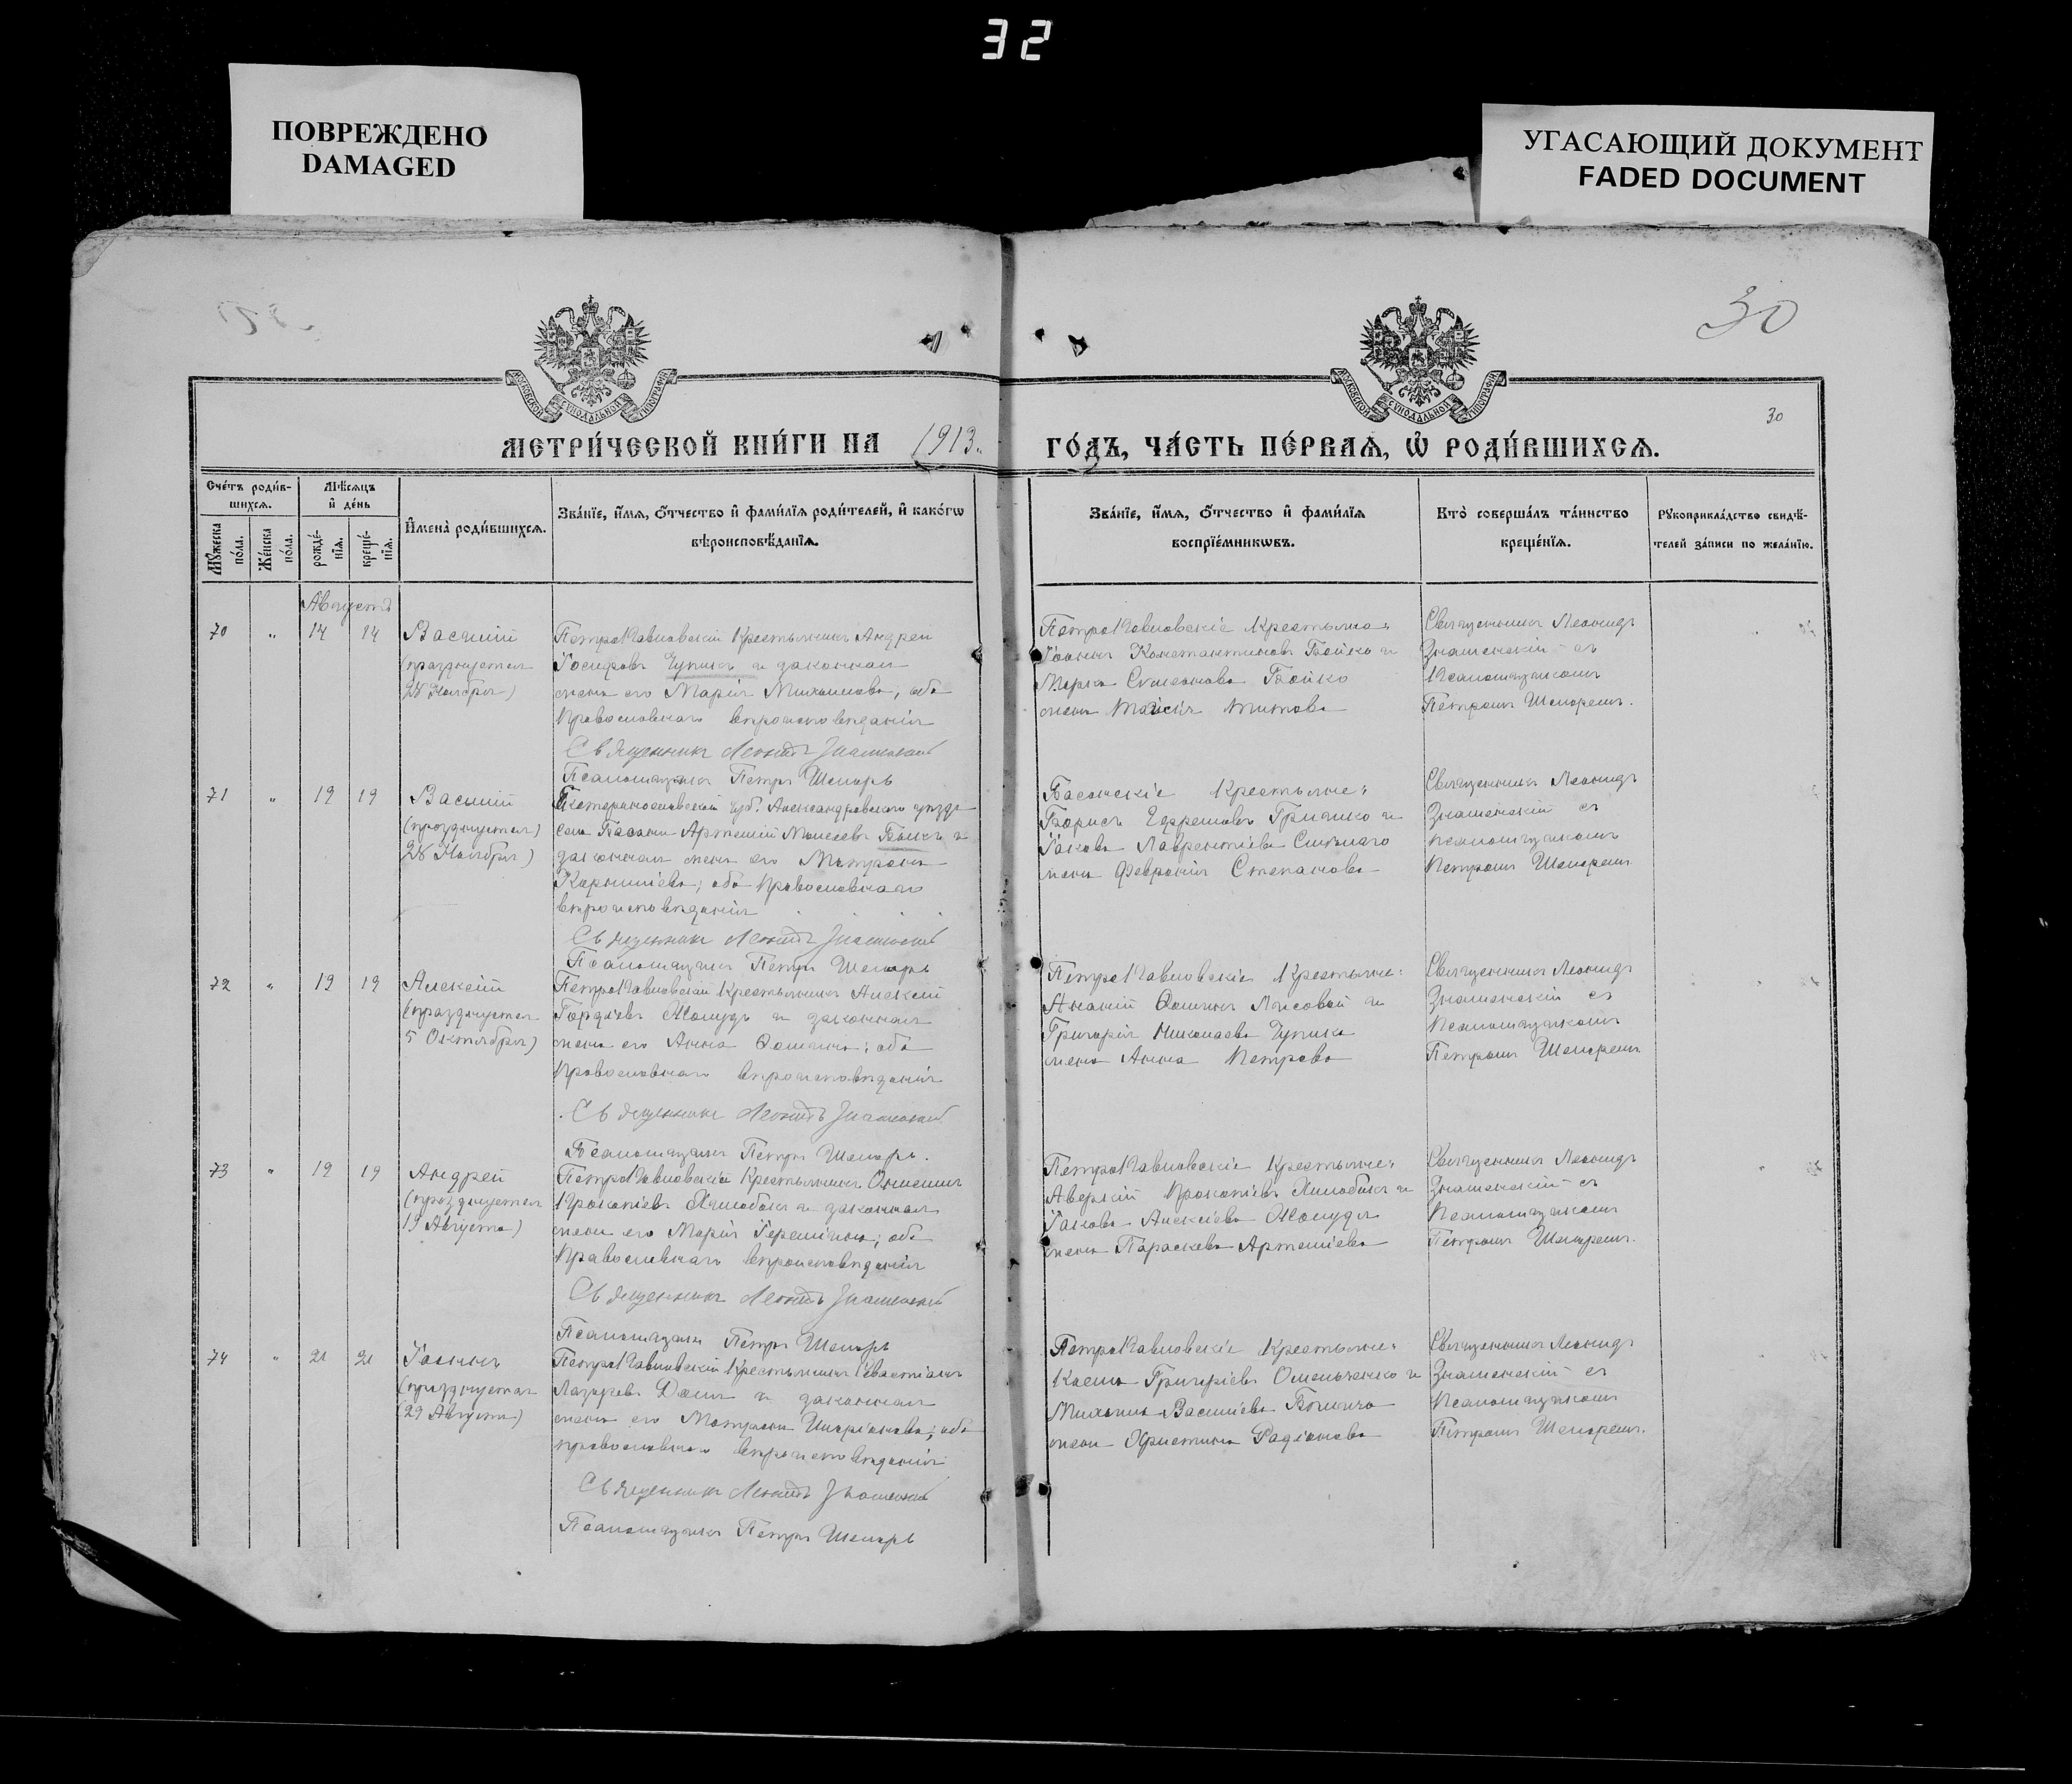 32
ПОВРЕЖДЕНО
DAMAGED
УГАСАЮЩИЙ ДОКУМЕНТ
FADED DOCUMENT
30
МОСКОВСКОЙ СѴНОДАЛЬНОЙ ТИПОГРАФІИ
МОСКОВСКОЙ СѴНОДАЛЬНОЙ ТИПОГРАФІИ
30
МЕТРИ́ЧЕСКОЙ КНИ́ГИ НА 1913.
ГО́ДЪ, ЧА́СТЬ ПЕ́РВАѦ, Ѡ҆ РОДИ́ВШИХСѦ.
Сче́тъ роди́в-
шихсѧ.
Мꙋжеска по́ла.
Же́нска по́ла.
Мѣ́сѧцъ
и҆ де́нь
рожде́-нїѧ.
креще́-нїѧ.
И҆мена̀ роди́вшихсѧ.
Зва́нїе, и҆́мѧ, ѻ҆́тчество и҆ фами́лїѧ роди́телей, и҆ како́гѡ
вѣроисповѣ́данїѧ.
Зва́нїе, и҆́мѧ, ѻ҆́тчество и҆ фами́лїѧ
воспрїе́мникѡвъ.
Кто̀ соверша́лъ та́инство
креще́нїѧ.
Рꙋкоприкла́дство свидѣ́-
телей за́писи по жела́нїю.
Августъ
70 " 14 14
Василій
(празднуется
28 Ноября)
ПетроПавловскій Крестьянинъ Андрей
Іосифовъ Чупикъ и законная
жена его Марія Михаилова, оба
Православнаго вѣроисповѣданія
Священникъ Леонидъ Знаменскій
Псаломщикъ Петръ Шепарь
ПетроПавловскіе Крестьяне:
Іоаннъ Константиновъ Бойко и
Марка Симеонова Бойко
жена Таисія Титова
Священникъ Леонидъ
Знаменскій съ
Псаломщикомъ
Петромъ Шепаремъ.
71 " 19 19
Василій
(празднуется)
28 Ноября)
Екатеринославской губ. Александровскаго уѣзда
села Басани Артемій Моисеевъ и
законная жена его Матрона
Корниліева; оба Православнаго
вѣроисповѣданія
Священникъ Леонидъ Знаменскій
Псаломщикъ Петръ Шепарь
Басанскіе Крестьяне:
Борисъ Ефремовъ Гричико и
Іакова Лаврентіева
жена Февронія Степанова
Священникъ Леонидъ
Знаменскій съ
псаломщикомъ
Петромъ Шепаремъ
72 " 19 19
Алексій
(празднуется
5 Октября)
ПетроПавловскій Крестьянинъ Алексій
Гордіевъ Жолудь и законная
жена его Анна Фомина; оба
Православнаго вѣроисповѣданія
Священникъ Леонидъ Знаменскій
Псаломщикъ Петръ Шепарь.
ПетроПавловскіе Крестьяне:
Ананій Фоминъ Лысовой и
Григорія Николаева Чупика
жена Анна Петрова
Священникъ Леонидъ
Знаменскій съ
Псаломщикомъ
Петромъ Шепаремъ
73 " 19 19
Андрей
(празднуется
19 Августа)
ПетроПавловскій Крестьянинъ
Прокопіевъ и законная
жена его Марія Іереміина; оба
Православнаго вѣроисповѣданія
Священникъ Леонидъ Знаменскій
Псаломщикъ Петръ Шепарь
ПетроПавловскіе Крестьяне:
Аверкій Прокопіевъ и
Іакова Алексіева Жолудя
жена Параскева Артеміева
Священникъ Леонидъ
Знаменскій съ
Псаломщикомъ
Петромъ Шепаремъ.
74 " 21 21
Іоаннъ
(празднуется
(29 Августа)
ПетроПавловскій Крестьянинъ Севастіанъ
Лазаревъ и законная
жена его Матрона Иларіонова; оба
православнаго вѣроисповѣданія
Священникъ Леонидъ Знаменскій
Псаломщикъ Петръ Шепарь
ПетроПавловскіе Крестьяне:
Косма Григоріевъ Омельченко и
Михаила Васильева
жена Христина Радіонова
Священникъ Леонидъ
Знаменскій съ
Псаломщикомъ
Петромъ Шепаремъ.